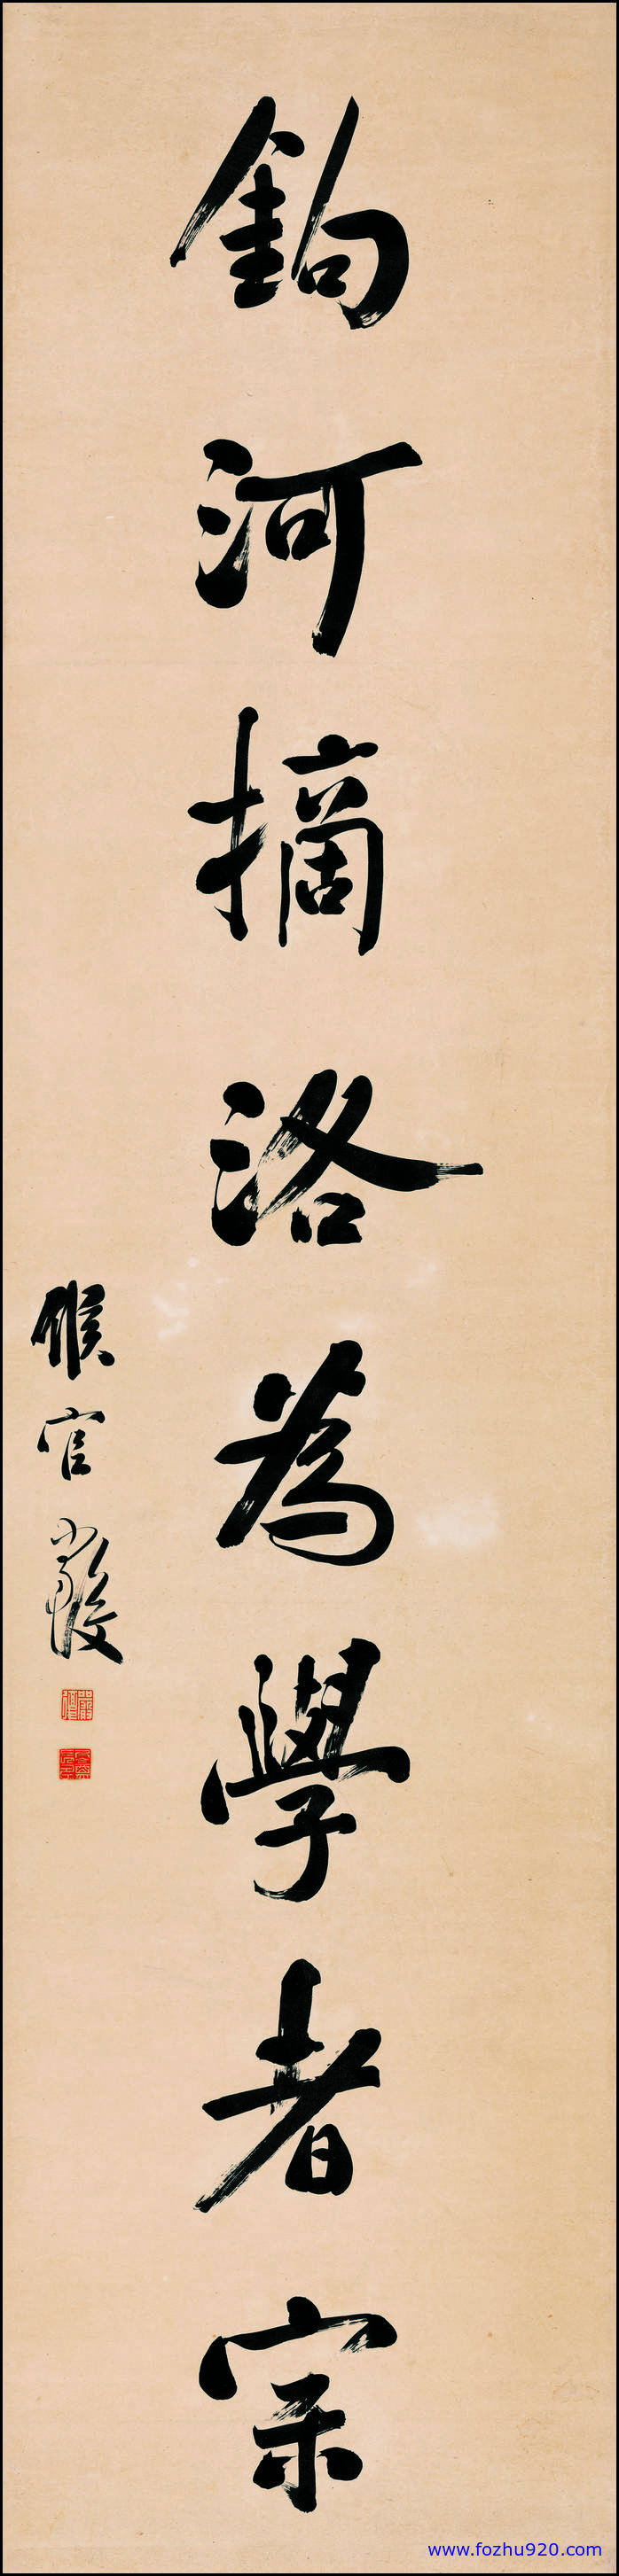 鉤河摘洛為學者宗
候官嚴復
嚴復
www.fozhu920.com